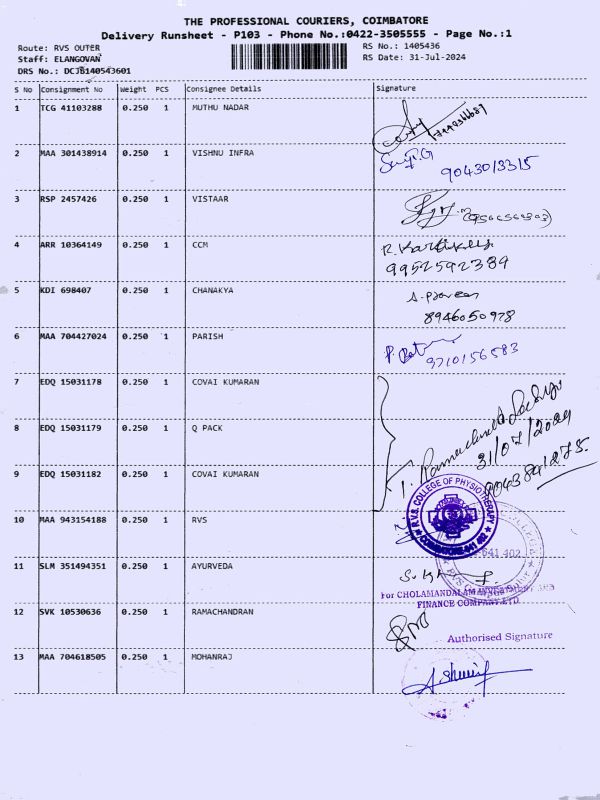 THE PROFESSIONAL COURIERS, COIMBATORE
Delivery Runsheet - P103 - Phone No.:0422-3505555 - Page No.:1
Route: RVS OUTER
RS No.: 1405436
Staff: ELANGOVAN
RS Date: 31-Jul-2024
DRS No.: DCJB140543601
S No Consignment No Weight PCS Consignee Details Signature
1 TCG 41103288 0.250 1 MUTHU NADAR
2 MAA 301438914 0.250 1 VISHNU INFRA
9043013315
3 RSP 2457426 0.250 1 VISTAAR
4 ARR 10364149 0.250 1 CCM
9952592389
5 KDI 698407 0.250 1 CHANAKYA
8946050978
6 MAA 704427024 0.250 1 PARISH
9710156583
7 EDQ 15031178 0.250 1 COVAI KUMARAN
8 EDQ 15031179 0.250 1 Q PACK
31/07/2024
9 EDQ 15031182 0.250 1 COVAI KUMARAN
9043841275
10 MAA 943154188 0.250 1 RVS
R.V.S. COLLEGE OF PHYSIOTHERAPY
COIMBATORE-641 402
641 402
11 SLM 351494351 0.250 1 AYURVEDA
For CHOLAMANDALAM
FINANCE COMPANY LTD
12 SVK 10530636 0.250 1 RAMACHANDRAN
Authorised Signature
13 MAA 704618505 0.250 1 MOHANRAJ